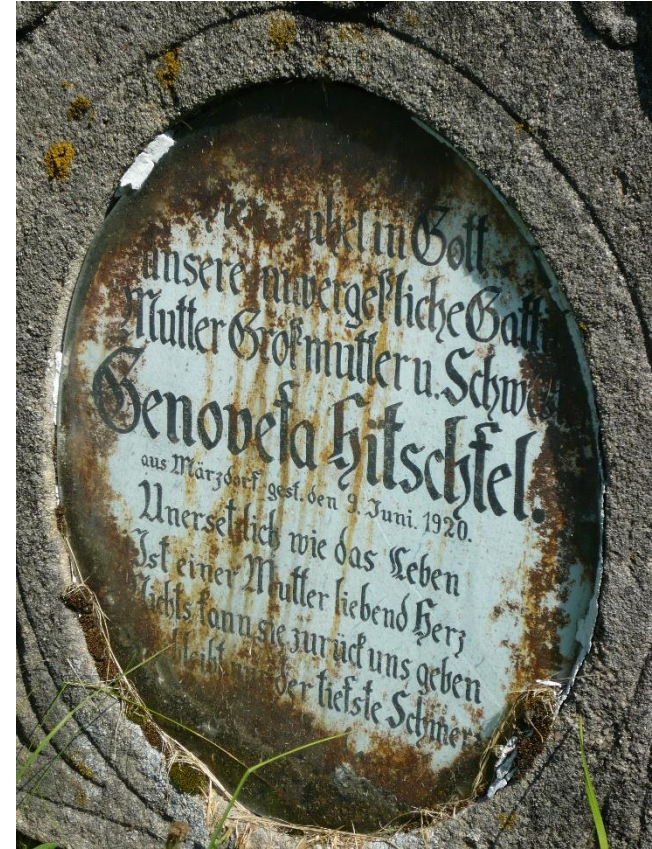 in Gott
unsere unvergeßliche Gatti
Mutter Großmutter u. Schwest
Genovefa Hitschfel.
aus Märzdorf gest. den 9. Juni. 1920.
Unersetzlich wie das Leben
Ist einer Mutter liebend Herz
Nichts kann sie zurück uns geben
bleibt nur der tiefste Schmer